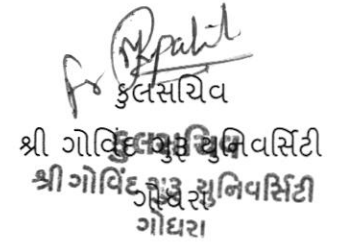 કુલસચિવ
શ્રી ગોવિંદ ગુરૂ યુનિવર્સિટી
શ્રી ગોવિંદ ગુરૂ યુનિવર્સિટી
ગોધરા
ગોધરા